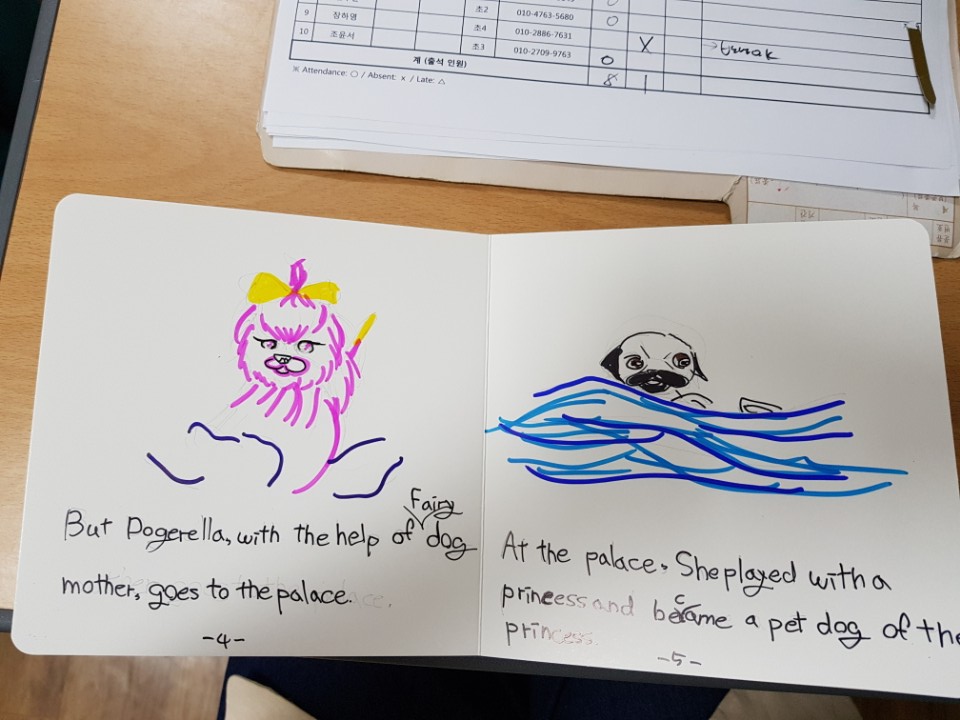 초2
010-4763-5680
○
9
장하영
초4
010-2886-7631
X
→
10
조윤서
초3
010-2709-9763
○
계 (출석 인원)
8
1
※ Attendance: ○ / Absent: × / Late: △
Fairy
But Dogerella, with the help of dog
mother, goes to the palace.
-4-
At the palace. She played with a
princess and became a pet dog of the
princess.
-5-